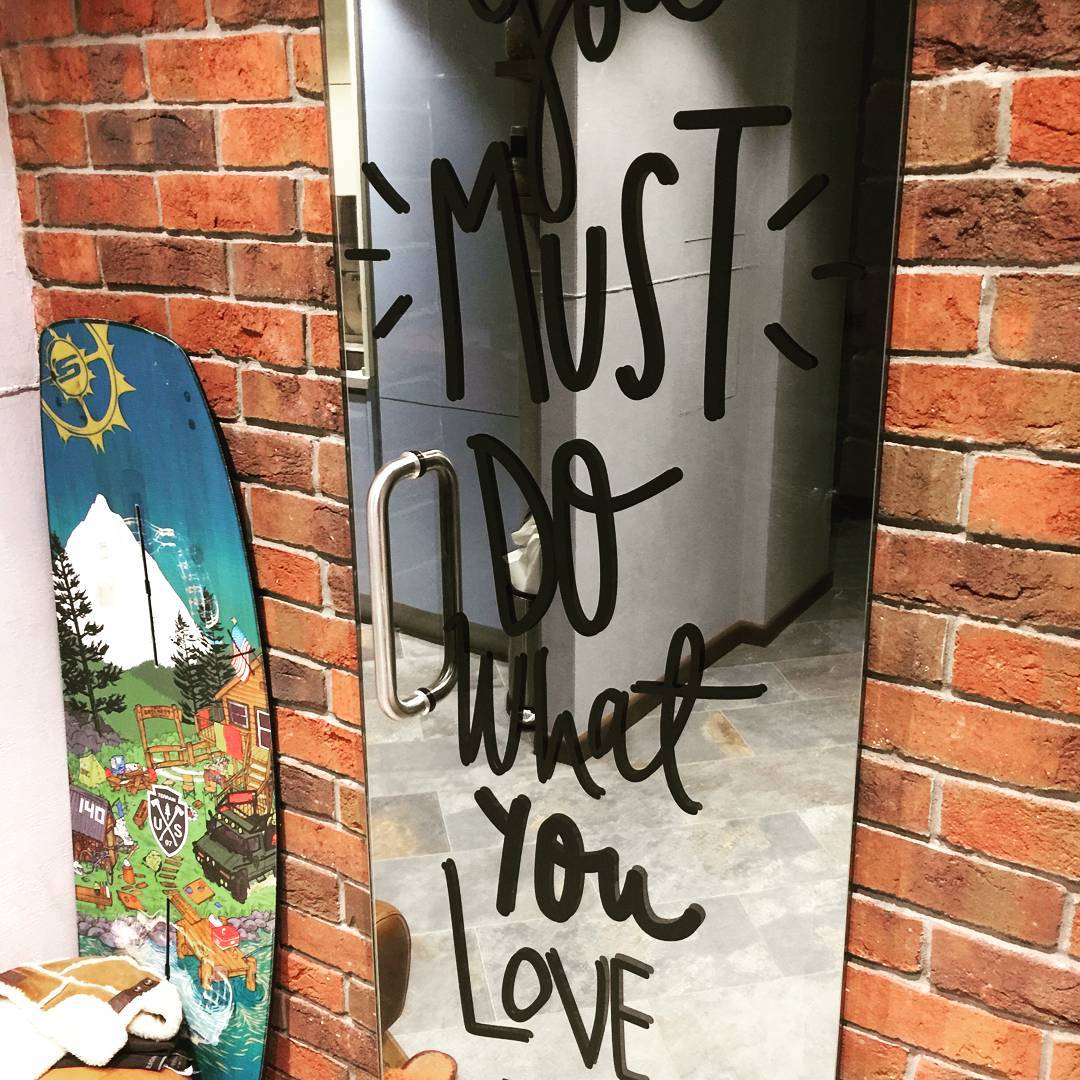 you
MUST
DO
What
You
LOVE
S
140
US
97